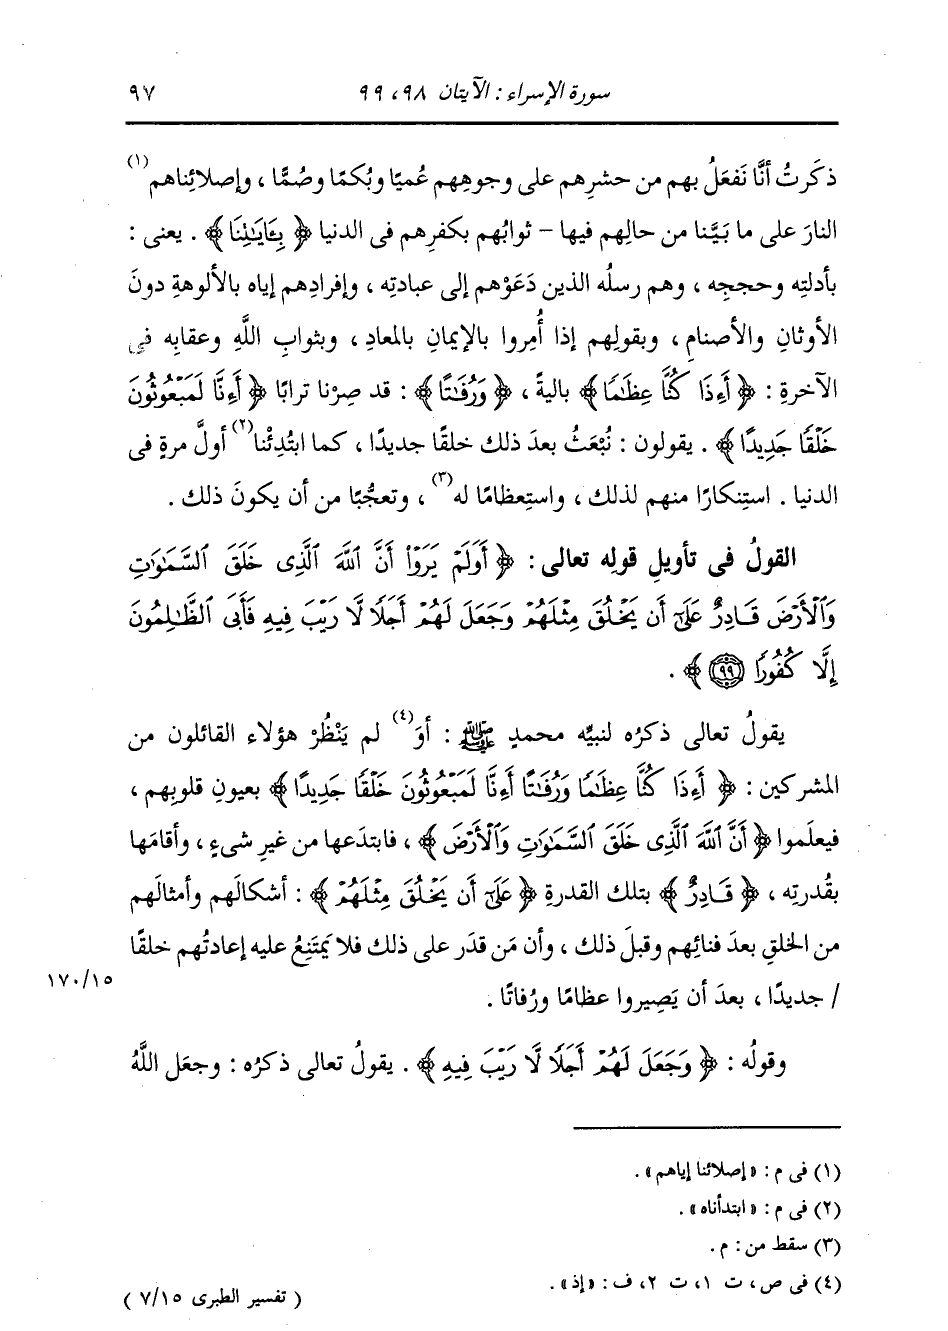 سورة الإسراء : الآيتان ٩٨ ، ٩٩ ٩٧
ذكَرتُ أنَّا نَفعَلُ بهم من حشرِهم على وجوهِهم عُميًا وبُكمًا وصُمًّا ، وإصلائِناهم(١)
النارَ على ما بَيَّنا من حالِهم فيها – ثوابُهم بكفرِهم فى الدنيا ﴿ بِـَٔايَـٰتِنَا ﴾ . يعنى :
بأدلتِه وحججِه ، وهم رسلُه الذين دَعَوْهم إلى عبادتِه ، وإفرادِهم إياه بالألوهةِ دونَ
الأوثانِ والأصنامِ ، وبقولِهم إذا أُمِروا بالإيمانِ بالمعادِ ، وبثوابِ اللَّهِ وعقابِه فى
الآخرةِ : ﴿ أَءِذَا كُنَّا عِظَـٰمًا ﴾ باليةً ، ﴿ وَرُفَـٰتًا ﴾ : قد صِرْنا ترابًا ﴿ أَءِنَّا لَمَبْعُوثُونَ
خَلْقًا جَدِيدًا ﴾ . يقولون : نُبْعَثُ بعدَ ذلك خلقًا جديدًا ، كما ابتُدِئْنا(٢) أولَّ مرةٍ فى
الدنيا . استِنكارًا منهم لذلك ، واستِعظامًا له(٣) ، وتعجُّبًا من أن يكونَ ذلك .
القولُ فى تأويلِ قولِه تعالى : ﴿ أَوَلَمْ يَرَوْا۟ أَنَّ ٱللَّهَ ٱلَّذِى خَلَقَ ٱلسَّمَـٰوَٰتِ
وَٱلْأَرْضَ قَادِرٌ عَلَىٰٓ أَن يَخْلُقَ مِثْلَهُمْ وَجَعَلَ لَهُمْ أَجَلًا لَّا رَيْبَ فِيهِ فَأَبَى ٱلظَّـٰلِمُونَ
إِلَّا كُفُورًا ۝٩٩ ﴾ .
يقولُ تعالى ذكرُه لنبيِّه محمدٍ ﷺ : أوَ(٤) لم يَنْظُرْ هؤلاء القائلون من
المشركين : ﴿ أَءِذَا كُنَّا عِظَـٰمًا وَرُفَـٰتًا أَءِنَّا لَمَبْعُوثُونَ خَلْقًا جَدِيدًا ﴾ بعيونِ قلوبِهم ،
فيعلَموا ﴿ أَنَّ ٱللَّهَ ٱلَّذِى خَلَقَ ٱلسَّمَـٰوَٰتِ وَٱلْأَرْضَ ﴾ ، فابتدَعها من غيرِ شىءٍ ، وأقامَها
بقُدرتِه ، ﴿ قَادِرٌ ﴾ بتلك القدرةِ ﴿ عَلَىٰٓ أَن يَخْلُقَ مِثْلَهُمْ ﴾ : أشكالَهم وأمثالَهم
من الخلقِ بعدَ فنائِهم وقبلَ ذلك ، وأن مَن قدَر على ذلك فلا يَمتَنِعُ عليه إعادتُهم خلقًا
/ جديدًا ، بعدَ أن يَصِيروا عظامًا ورُفاتًا . ١٧٠/١٥
وقولُه : ﴿ وَجَعَلَ لَهُمْ أَجَلًا لَّا رَيْبَ فِيهِ ﴾ . يقولُ تعالى ذكرُه : وجعَل اللَّهُ
(١) فى م : « إصلائنا إياهم » .
(٢) فى م : « ابتدأناه » .
(٣) سقط من : م .
(٤) فى ص ، ت ١، ت ٢، ف : « إذ » .
( تفسير الطبرى ٧/١٥ )